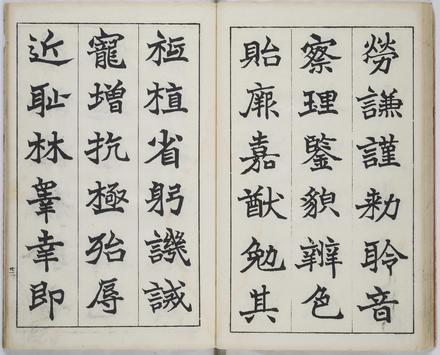 勞謙謹勅聆音
察理鑒貌辨色
貽厥嘉猷勉其
祗植省躬譏誡
寵增抗極殆辱
近耻林皐幸即